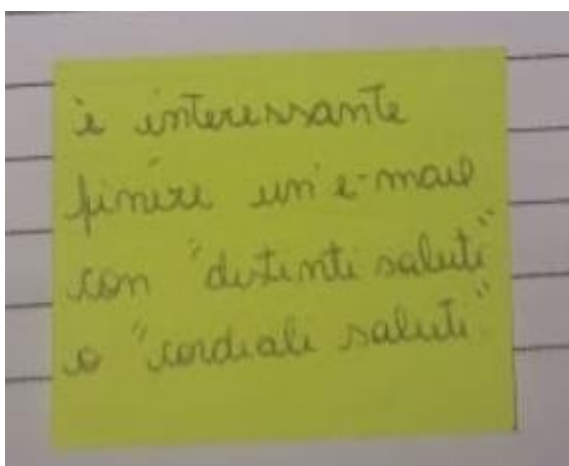 è interessante
finire un'e-mail
con "distinti saluti"
o "cordiali saluti".